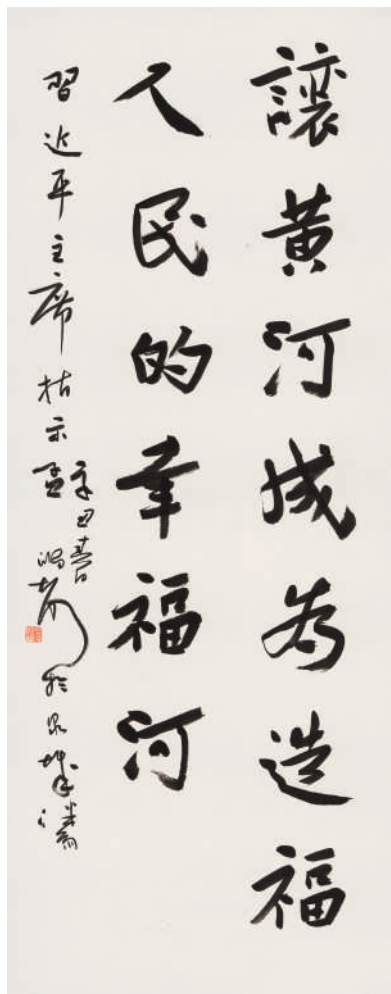 讓黃河成為造福
人民的幸福河
習近平主席指示 辛丑春
孟鴻聲 於泉城